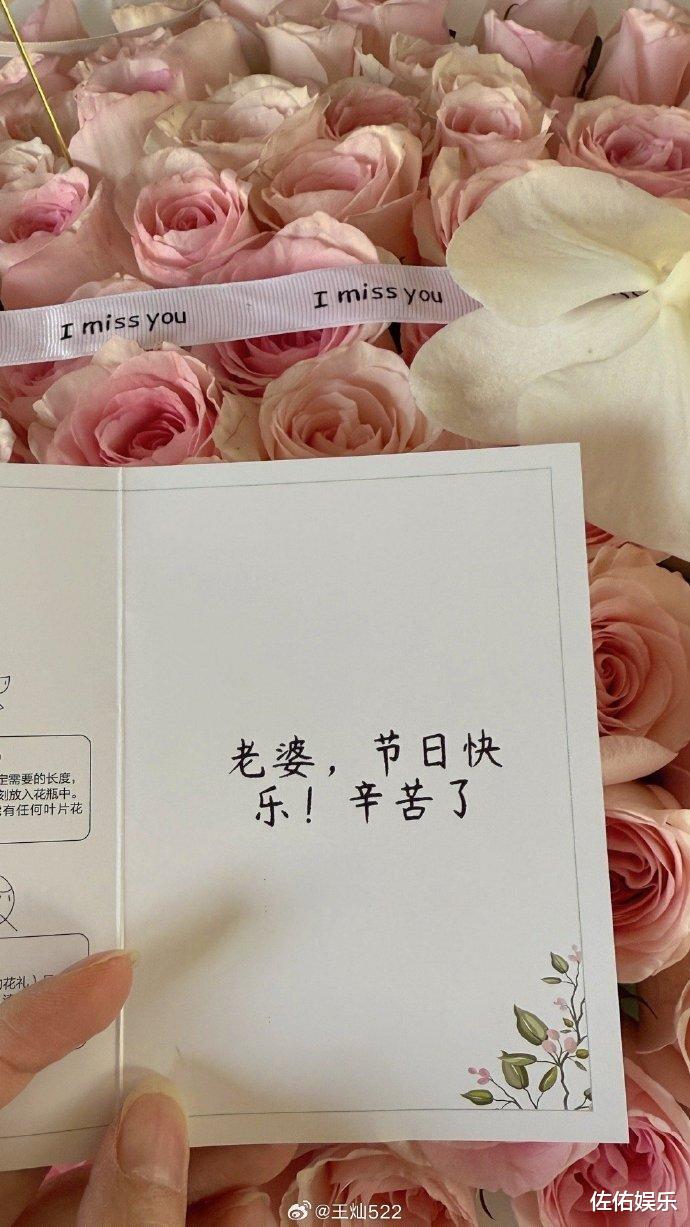 I miss you
I miss you
老婆，节日快
乐！辛苦了
定需要的长度，
刻放入花瓶中。
有任何叶片花
@王灿522
佐佑娱乐